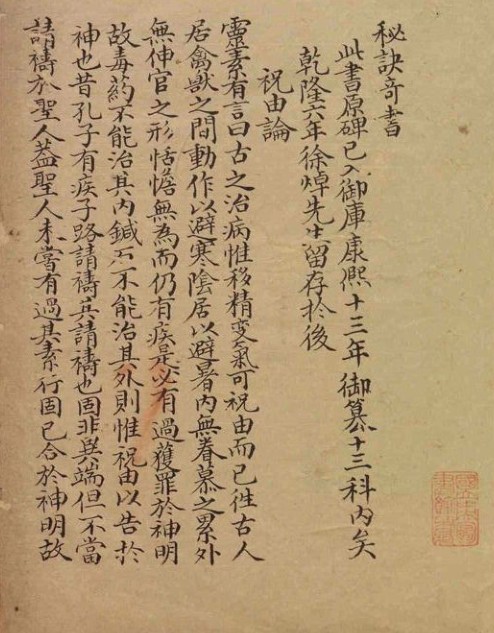 秘訣奇書
此書原碑已入御庫康熙十三年 御纂十三科内矣
乾隆六年徐焯先生留存於後
祝由論
靈素有言曰古之治病惟移精变氣可祝由而已徃古人
居禽獸之間動作以避寒陰居以避暑内無眷慕之累外
無伸官之形恬憺無為而仍有疾是必有過獲罪於神明
故毒药不能治其内鍼石不能治其外則惟祝由以告於
神也昔孔子有疾子路請禱其請禱也固非異端但不當
請禱於聖人蓋聖人未嘗有過其素行固已合於神明故